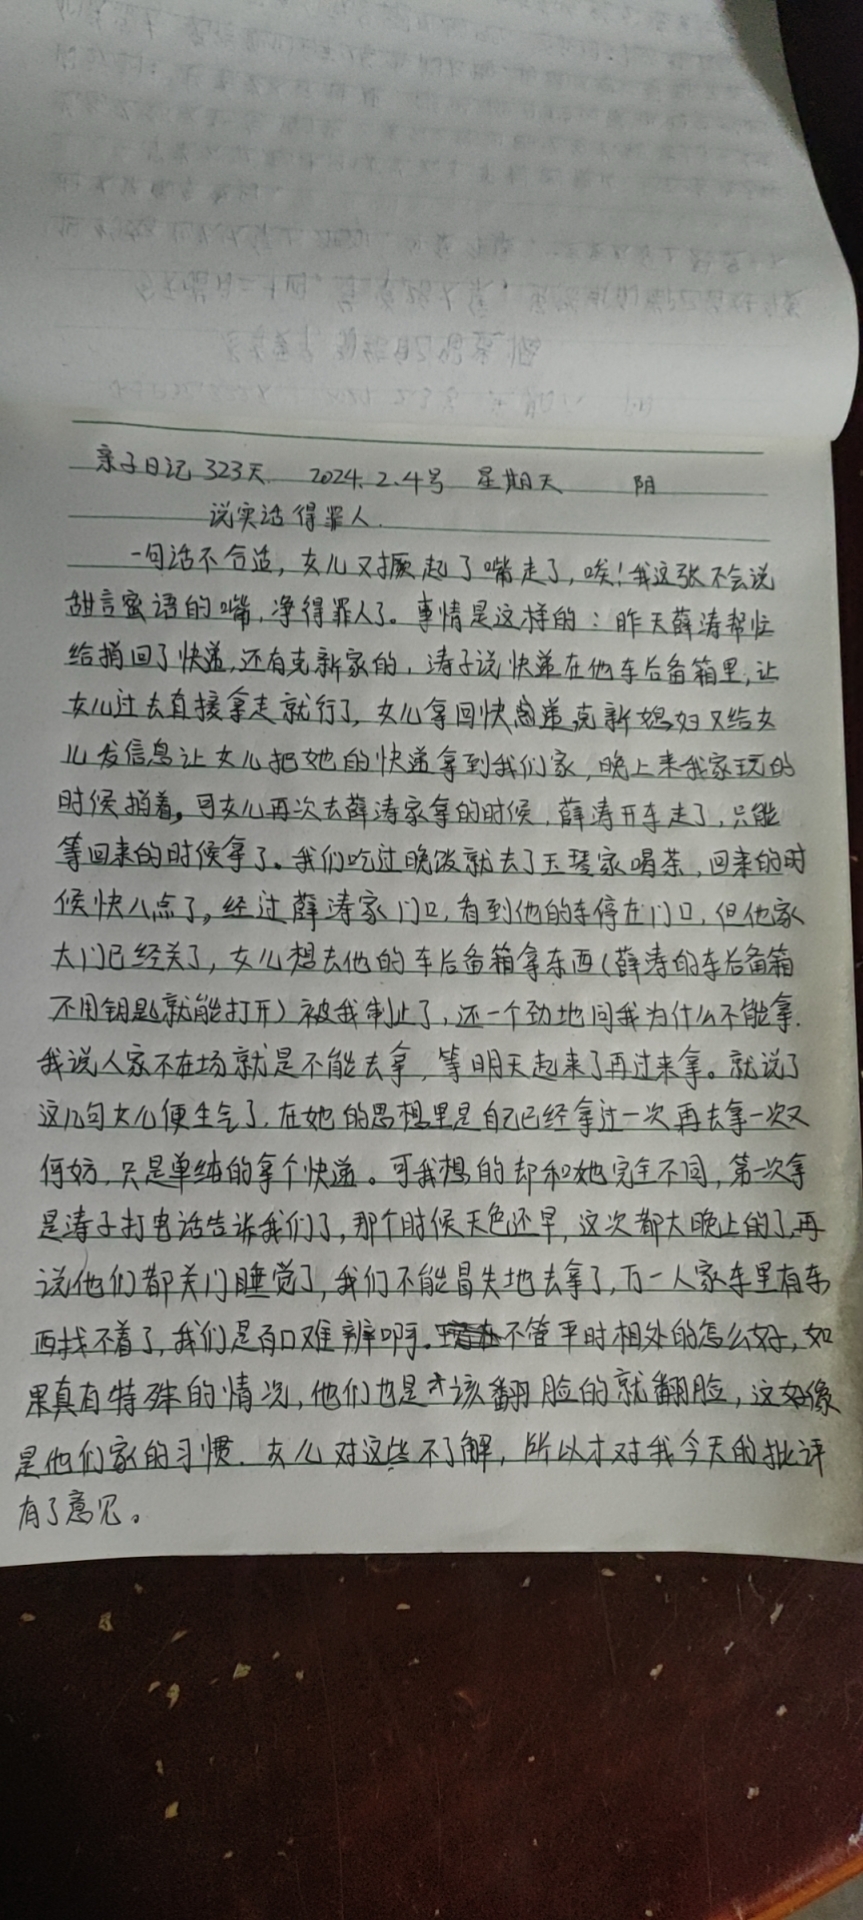 亲子日记 323天 2024.2.4号 星期天 阴
说实话得罪人.
一句话不合适，女儿又撅起了嘴走了，唉！我这张不会说
甜言蜜语的嘴，净得罪人了。事情是这样的：昨天薛涛帮忙
给捎回了快递，还有克新家的，涛子说快递在他车后备箱里，让
女儿过去直接拿走就行了，女儿拿回快递，克新媳妇又给女
儿发信息让女儿把她的快递拿到我们家，晚上来我家玩的
时候捎着，可女儿再次去薛涛家拿的时候，薛涛开车走了，只能
等回来的时候拿了。我们吃过晚饭就去了玉琴家喝茶，回来的时
候快八点了，经过薛涛家门口，看到他的车停在门口，但他家
大门已经关了，女儿想去他的车后备箱拿东西（薛涛的车后备箱
不用钥匙就能打开）被我制止了，还一个劲地问我为什么不能拿.
我说人家不在场就是不能去拿，等明天起来了再过来拿。就说了
这几句女儿便生气了，在她的思想里是自己已经拿过一次再去拿一次又
何妨，只是单纯的拿个快递。可我想的却和她完全不同，第一次拿
是涛子打电话告诉我们了，那个时候天色还早，这次都大晚上的了，再
说他们都关门睡觉了，我们不能冒失地去拿了，万一人家车里有东
西找不着了，我们是百口难辨啊。不管平时相处的怎么好，如
果真有特殊的情况，他们也是该翻脸的就翻脸，这好像
是他们家的习惯. 女儿对这些不了解，所以才对我今天的批评
有了意见。